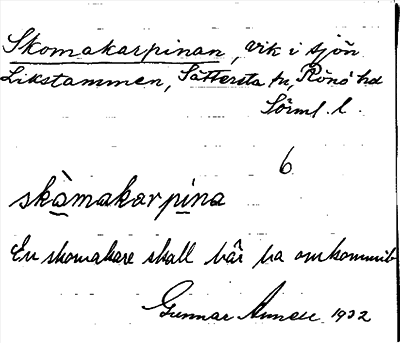 Skomakarpinan, vik i sjön
Likstammen, Sättersta sn, Rönö hd
Sörml. l.
6
skòmakarpina
En skomakare skall här ha omkommit
Gunnar 1932